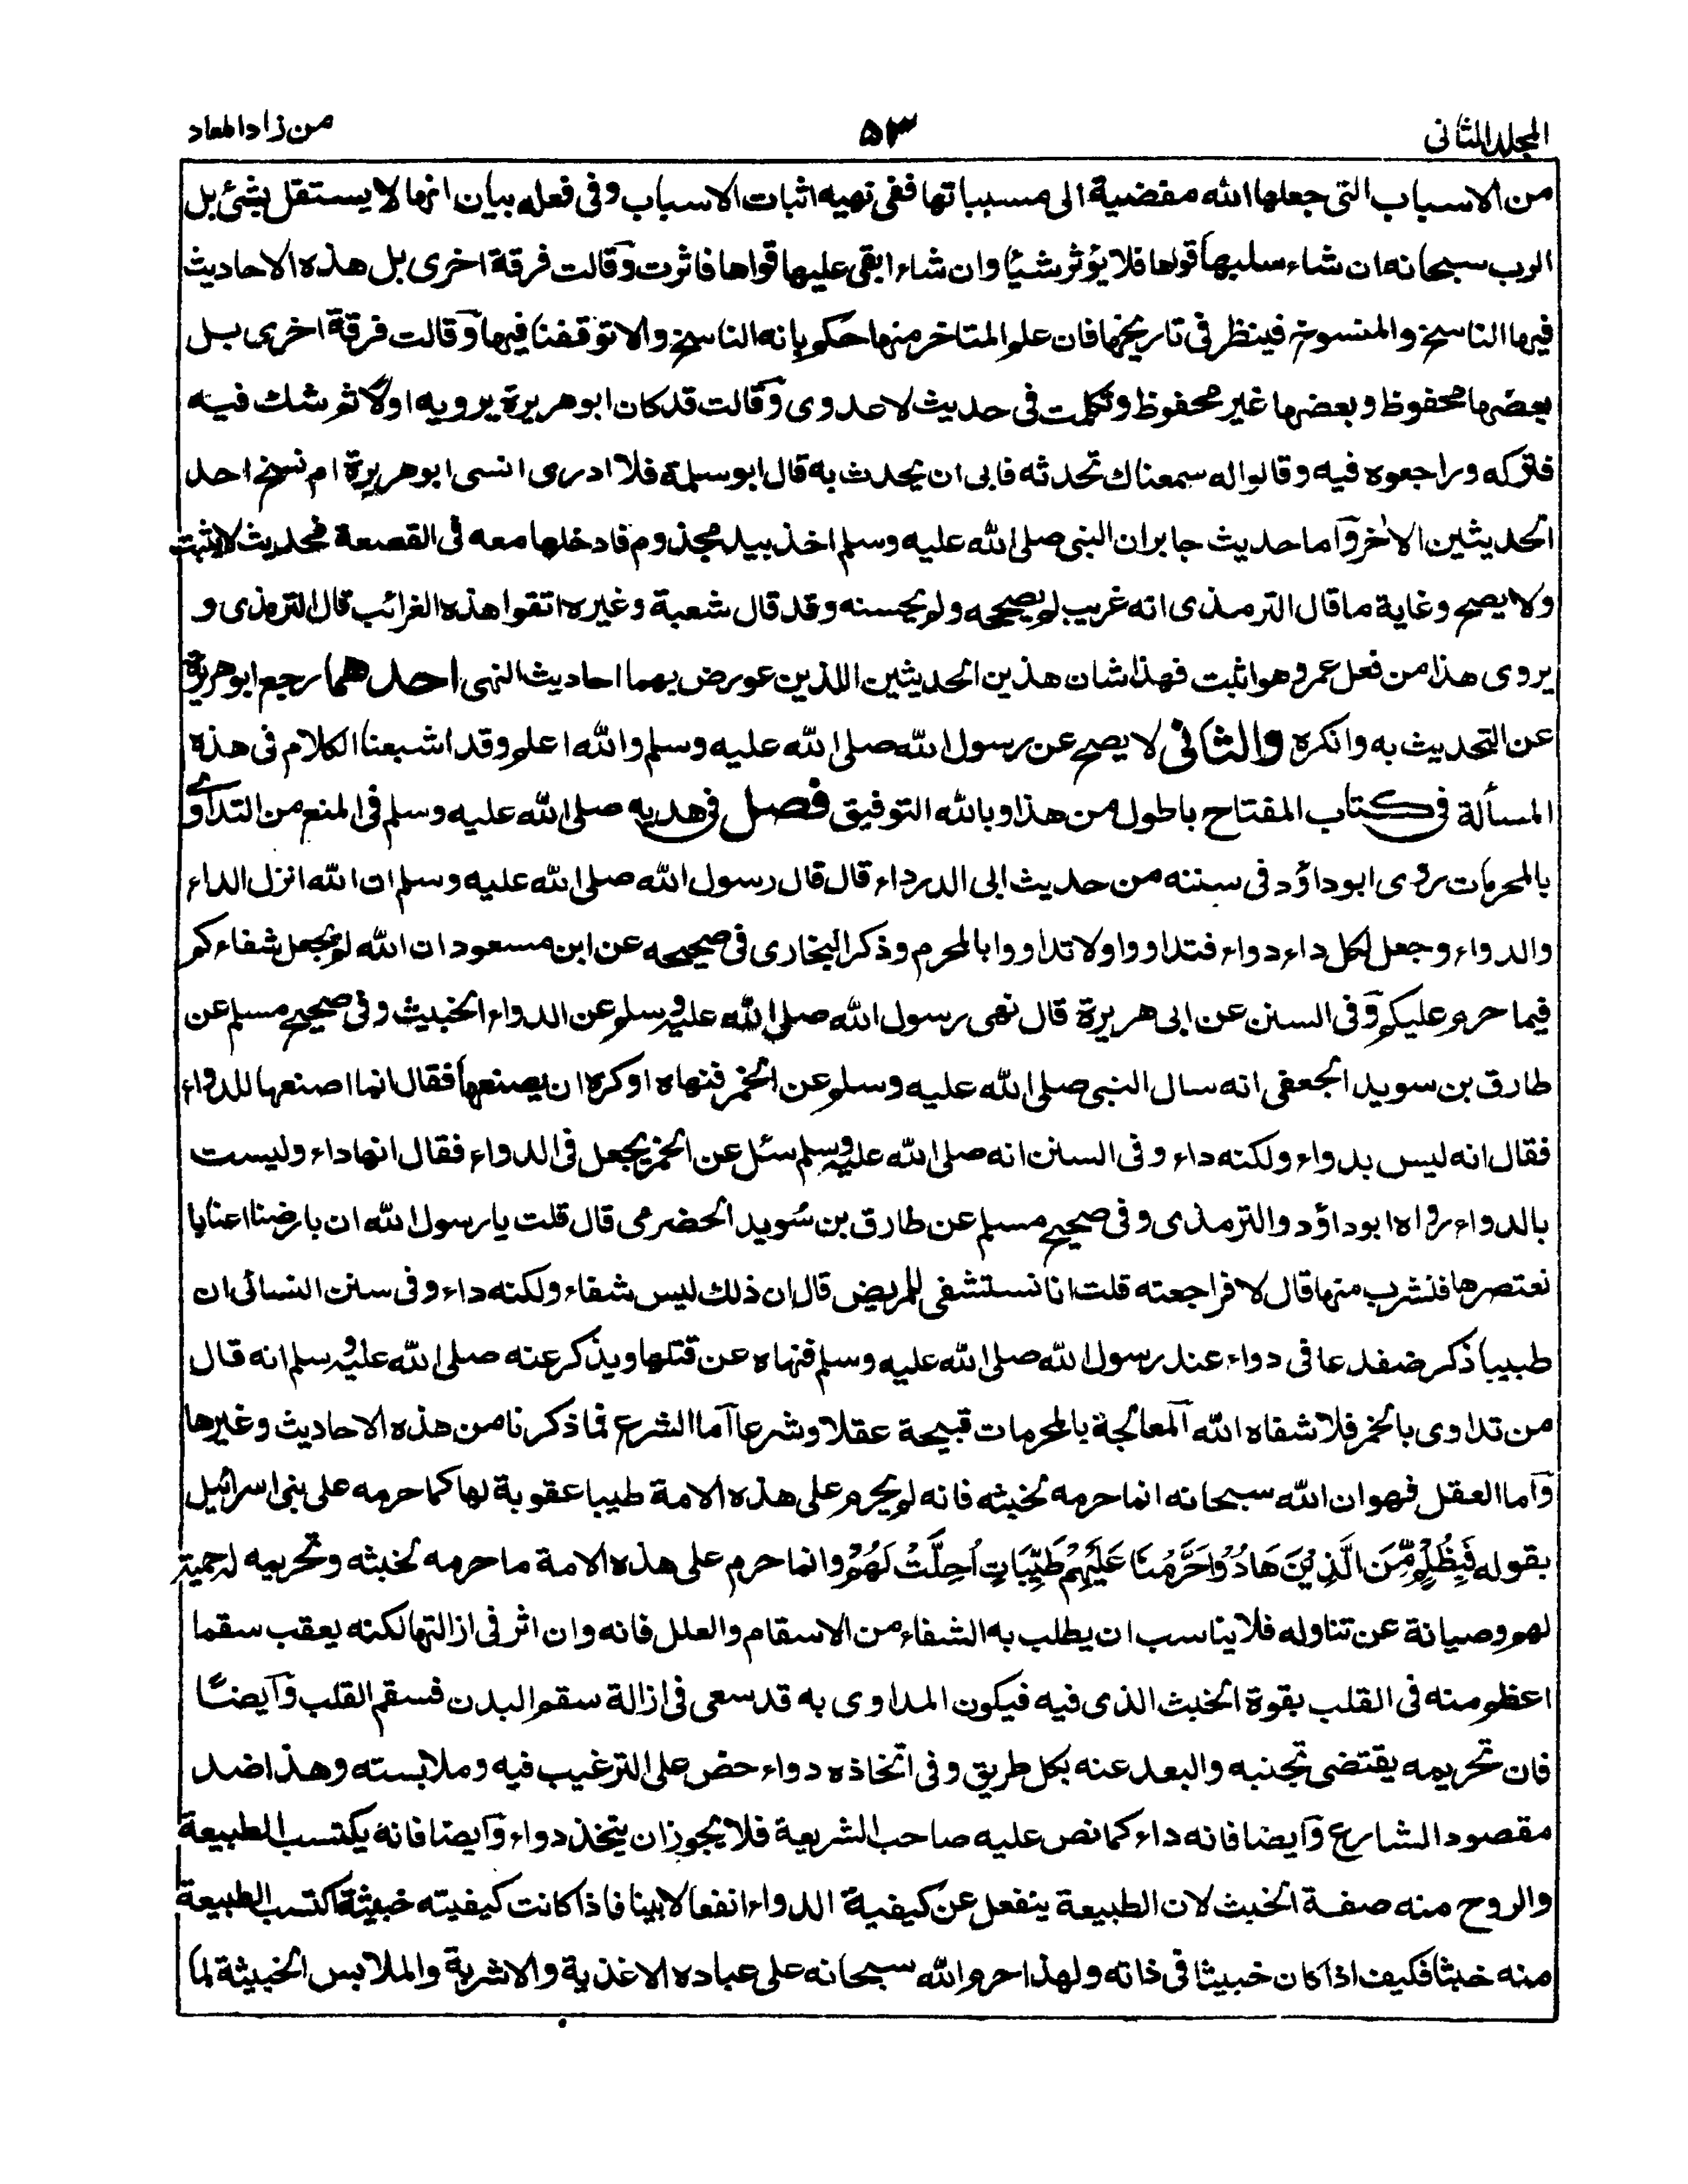 المجلد الثانى
۵۳
من زاد المعاد
من الاسباب التى جعلها الله مفضية الى مسبباتها ففى نهيه اثبات الاسباب وفى فعله بيان انها لا يستقل بشئ بل
الرب سبحانه ان شاء سلبها قواها فلا يؤثر شيئا وان شاء ابقى عليها قواها فاثرت وقالت فرقة اخرى بل هذه الاحاديث
فيها الناسخ والمنسوخ فينظر فى تاريخها فان علم المتاخر منها حكم بانه الناسخ والا توقفنا فيها وقالت فرقة اخرى بل
بعضها محفوظ وبعضها غير محفوظ وتكلمت فى حديث لا عدوى وقالت قد كان ابو هريرة يرويه اولا ثم شك فيه
فتركه وراجعوه فيه وقالوا له سمعناك تحدثه فابى ان يحدث به قال ابو سلمة فلا ادرى انسى ابو هريرة ام نسخ احد
الحديثين الاخر وآما حديث جابر ان النبى صلى الله عليه وسلم اخذ بيد مجذوم فادخلها معه فى القصعة فحديث لا يثبت
ولا يصح وغاية ما قال الترمذى انه غريب لم يصححه ولم يحسنه وقد قال شعبة وغيره اتقوا هذه الغرائب قال الترمذى و
يروى هذا من فعل عمر وهو اثبت فهذا شان هذين الحديثين اللذين عورض بهما احاديث النهى احدهما رجع ابو هريرة
عن التحديث به وانكره والثانى لا يصح عن رسول الله صلى الله عليه وسلم والله اعلم وقد اشبعنا الكلام فى هذه
المسألة فى كتاب المفتاح باطول من هذا وبالله التوفيق فصل فى هديه صلى الله عليه وسلم فى المنع من التداوى
بالمحرمات روى ابو داؤد فى سننه من حديث ابى الدرداء قال قال رسول الله صلى الله عليه وسلم ان الله انزل الداء
والدواء وجعل لكل داء دواء فتداووا ولا تداووا بالمحرم وذكر البخارى فى صحيحه عن ابن مسعود ان الله لم يجعل شفاءكم
فيما حرم عليكم وفى السنن عن ابى هريرة قال نهى رسول الله صلى الله عليه وسلم عن الدواء الخبيث وفى صحيح مسلم عن
طارق بن سويد الجعفى انه سال النبى صلى الله عليه وسلم عن الخمر فنهاه او كره ان يصنعها فقال انما اصنعها للدواء
فقال انه ليس بدواء ولكنه داء وفى السنن انه صلى الله عليه وسلم سئل عن الخمر يجعل فى الدواء فقال انها داء وليست
بالدواء رواه ابو داؤد والترمذى وفى صحيح مسلم عن طارق بن سُويد الحضرمى قال قلت يا رسول الله ان بارضنا اعنابا
نعتصرها فنشرب منها قال لا فراجعته قلت انا نستشفى للمريض قال ان ذلك ليس شفاء ولكنه داء وفى سنن النسائى ان
طبيبا ذكر ضفدعا فى دواء عند رسول الله صلى الله عليه وسلم فنهاه عن قتلها ويذكر عنه صلى الله عليه وسلم انه قال
من تداوى بالخمر فلا شفاه الله آلمعالجة بالمحرمات قبيحة عقلا وشرعا آما الشرع فما ذكرنا من هذه الاحاديث وغيرها
وآما العقل فهو ان الله سبحانه انما حرمه لخبثه فانه لم يحرم على هذه الامة طيبا عقوبة لها كما حرمه على بنى اسرائيل
بقوله فَبِظُلْمٍ مِّنَ الَّذِيْنَ هَادُوْا حَرَّمْنَا عَلَيْهِمْ طَيِّبَاتٍ اُحِلَّتْ لَهُمْ وانما حرم على هذه الامة ما حرمه لخبثه وتحريمه له حمية
لهم وصيانة عن تناوله فلا يناسب ان يطلب به الشفاء من الاسقام والعلل فانه وان اثر فى ازالتها لكنه يعقب سقما
اعظم منه فى القلب بقوة الخبث الذى فيه فيكون المداوى به قد سعى فى ازالة سقم البدن فسقم القلب وآيضًا
فان تحريمه يقتضى تجنبه والبعد عنه بكل طريق وفى اتخاذه دواء حض على الترغيب فيه وملابسته وهذا ضد
مقصود الشارع وآيضا فانه داء كما نص عليه صاحب الشريعة فلا يجوز ان يتخذ دواء وآيضا فانه يكتسب الطبيعة
والروح منه صفة الخبث لان الطبيعة ينفعل عن كيفية الدواء انفعالا بينا فاذا كانت كيفيته خبيثة اكتسب الطبيعة
منه خبثا فكيف اذا كان خبيثا فى ذاته ولهذا حرم الله سبحانه على عباده الاغذية والاشربة والملابس الخبيثة لما